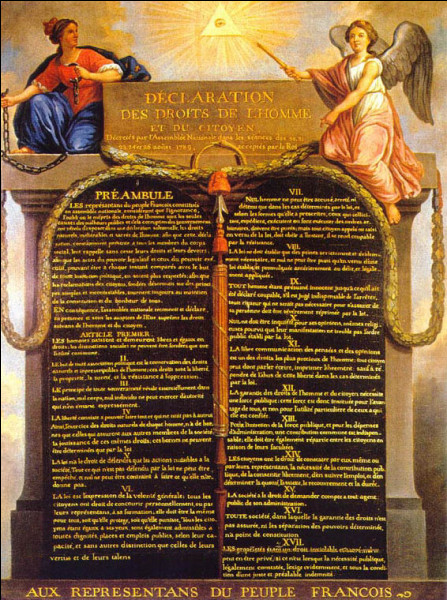 DÉCLARATION
DES DROITS DE L'HOMME
ET DU CITOYEN,
Décrétés par l'Assemblée Nationale dans les séances des 20, 21,
23, 24 et 26 août 1789, acceptés par le Roi
PRÉAMBULE
LES représentans du peuple François, constitués
en assemblée nationale, considérant que l'ignorance,
l'oubli ou le mépris des droits de l'homme sont les seules
causes des malheurs publics et de la corruption des gouvernemens
ont résolu d'exposer dans une déclaration solemnelle, les droits
naturels, inaliénables et sacrés de l'homme: afin que cette décla-
ration, constamment présente a tous les membres du corps
social, leur rappelle sans cesse leurs droits et leurs devoirs;
afin que les actes du pouvoir législatif et ceux du pouvoir exé-
cutif, pouvant être a chaque instant comparés avec le but
de toute institution politique, en soient plus respectés; afin que
les réclamations des citoyens, fondées désormais sur des princi-
pes simples et incontestables, tournent toujours au maintien
de la constitution et du bonheur de tous.
EN conséquence, l'assemblée nationale reconnoît et déclare,
en présence et sous les auspices de l'Être suprême les droits
suivans de l'homme et du citoyen.
ARTICLE PREMIER.
LES hommes naissent et demeurent libres et égaux en
droits. les distinctions sociales ne peuvent être fondées que sur
l'utilité commune.
II.
LE but de toute association politique est la conservation des droits
naturels et imprescriptibles de l'homme; ces droits sont la liberté,
la propriété, la sureté, et la résistance à l'oppression.
III.
LE principe de toute souveraineté réside essentiellement dans
la nation, nul corps, nul individu ne peut exercer d'autorité
qui n'en émane expressément.
IV.
LA liberté consiste a pouvoir faire tout ce qui ne nuit pas à autrui
Ainsi, l'exercice des droits naturels de chaque homme, n'a de bor-
nes que celles qui assurent aux autres membres de la société
la jouissance de ces mêmes droits; ces bornes ne peuvent
être déterminées que par la loi
V.
LA loi n'a le droit de défendre que les actions nuisibles à la
société. Tout ce qui n'est pas défendu par la loi ne peut être
empêché, et nul ne peut être contraint à faire ce qu'elle n'or-
donne pas.
VI.
LA loi est l'expression de la volonté générale; tous les
citoyens ont droit de concourir personnellement, ou par
leurs représentans, à sa formation; elle doit être la même
pour tous, soit qu'elle protege, soit qu'elle punisse. Tous les cito-
yens étant égaux à ses yeux, sont également admissibles a
toutes dignités, places et emplois publics, selon leur ca-
pacité, et sans autres distinction que celles de leurs
vertus et de leurs talens.
VII.
NUL homme ne peut être accusé, arrêté ni
détenu que dans les cas déterminés par la loi, et
selon les formes qu'elle a prescrites. ceux qui sollici-
tent, expédient, exécutent ou font exécuter des ordres ar-
bitraires, doivent être punis; mais tout citoyen appelé ou saisi
en vertu de la loi, doit obéir a l'instant, il se rend coupable
par la résistance.
VIII.
LA loi ne doit établir que des peines strictement et évidem-
ment nécessaires, et nul ne peut être puni qu'en vertu d'une
loi établie et promulguée antérieurement au délit, et légale-
ment appliquée.
IX.
TOUT homme étant présumé innocent jusqu'à ce qu'il ait
été déclaré coupable, s'il est jugé indispensable de l'arrêter,
toute rigueur qui ne seroit pas nécessaire pour s'assurer de
sa personne doit être sévèrement réprimée par la loi.
X.
NUL ne doit être inquiété pour ses opinions, mêmes religi-
euses pourvu que leur manifestation ne trouble pas l'ordre
public établi par la loi.
XI.
LA libre communication des pensées et des opinions est
un des droits les plus précieux de l'homme; tout citoyen
peut donc parler, écrire, imprimer librement: sauf à ré-
pondre de l'abus de cette liberté dans les cas déterminés
par la loi.
XII.
LA garantie des droits de l'homme et du citoyen nécessite
une force publique; cette force est donc instituée pour l'avan-
tage de tous, et non pour l'utilité particuliere de ceux a qui
elle est confiée.
XIII.
POUR l'entretien de la force publique, et pour les dépenses
d'administration, une contribution commune est indispen-
sable; elle doit être également répartie entre les citoyens en
raison de leurs facultés.
XIV.
LES citoyens ont le droit de constater par eux même ou
par leurs représentans, la nécessité de la contribution pub-
lique, de la consentir librement, d'en suivre l'emploi, et d'en
déterminer la quotité, l'assiette, le recouvrement et la durée.
XV.
LA société a le droit de demander compte a tout agent
public de son administration.
XVI.
TOUTE société, dans laquelle la garantie des droits n'est
pas assurée, ni les séparation des pouvoirs déterminée,
n'a point de constitution
XVII.
LES propriétés étant un droit inviolable et sacré, nul ne
peut en être privé, si ce n'est lorsque la nécessité publique,
légalement constatée, l'exige évidemment, et sous la condi-
tion d'une juste et préalable indemnité
AUX REPRESENTANS DU PEUPLE FRANCOIS